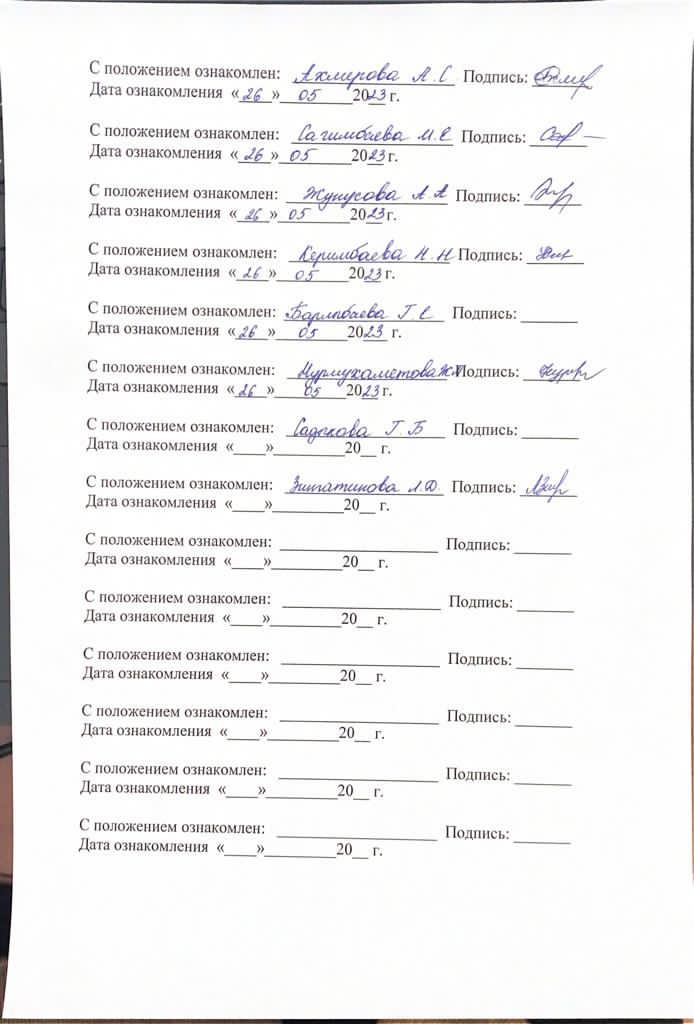 С положением ознакомлен: Ахмерова А. С Подпись: ______
Дата ознакомления «26» 05 2023 г.
С положением ознакомлен: Сагимбаева М. Е Подпись: ______
Дата ознакомления «26» 05 2023 г.
С положением ознакомлен: Жунусова А. А Подпись: ______
Дата ознакомления «26» 05 2023 г.
С положением ознакомлен: Керимбаева Н. Н Подпись: ______
Дата ознакомления «26» 05 2023 г.
С положением ознакомлен: Барлыбаева Г. Е Подпись: ______
Дата ознакомления «26» 05 2023 г.
С положением ознакомлен: Нурмухаметова Подпись: ______
Дата ознакомления «26» 05 2023 г.
С положением ознакомлен: Садыкова Г. Б Подпись: ______
Дата ознакомления «____»_________20__ г.
С положением ознакомлен: Зиятдинова Л. Д. Подпись: ______
Дата ознакомления «____»_________20__ г.
С положением ознакомлен: ____________________ Подпись: _______
Дата ознакомления «____»_________20__ г.
С положением ознакомлен: ____________________ Подпись: _______
Дата ознакомления «____»_________20__ г.
С положением ознакомлен: ____________________ Подпись: _______
Дата ознакомления «____»_________20__ г.
С положением ознакомлен: ____________________ Подпись: _______
Дата ознакомления «____»_________20__ г.
С положением ознакомлен: ____________________ Подпись: _______
Дата ознакомления «____»_________20__ г.
С положением ознакомлен: ____________________ Подпись: _______
Дата ознакомления «____»_________20__ г.